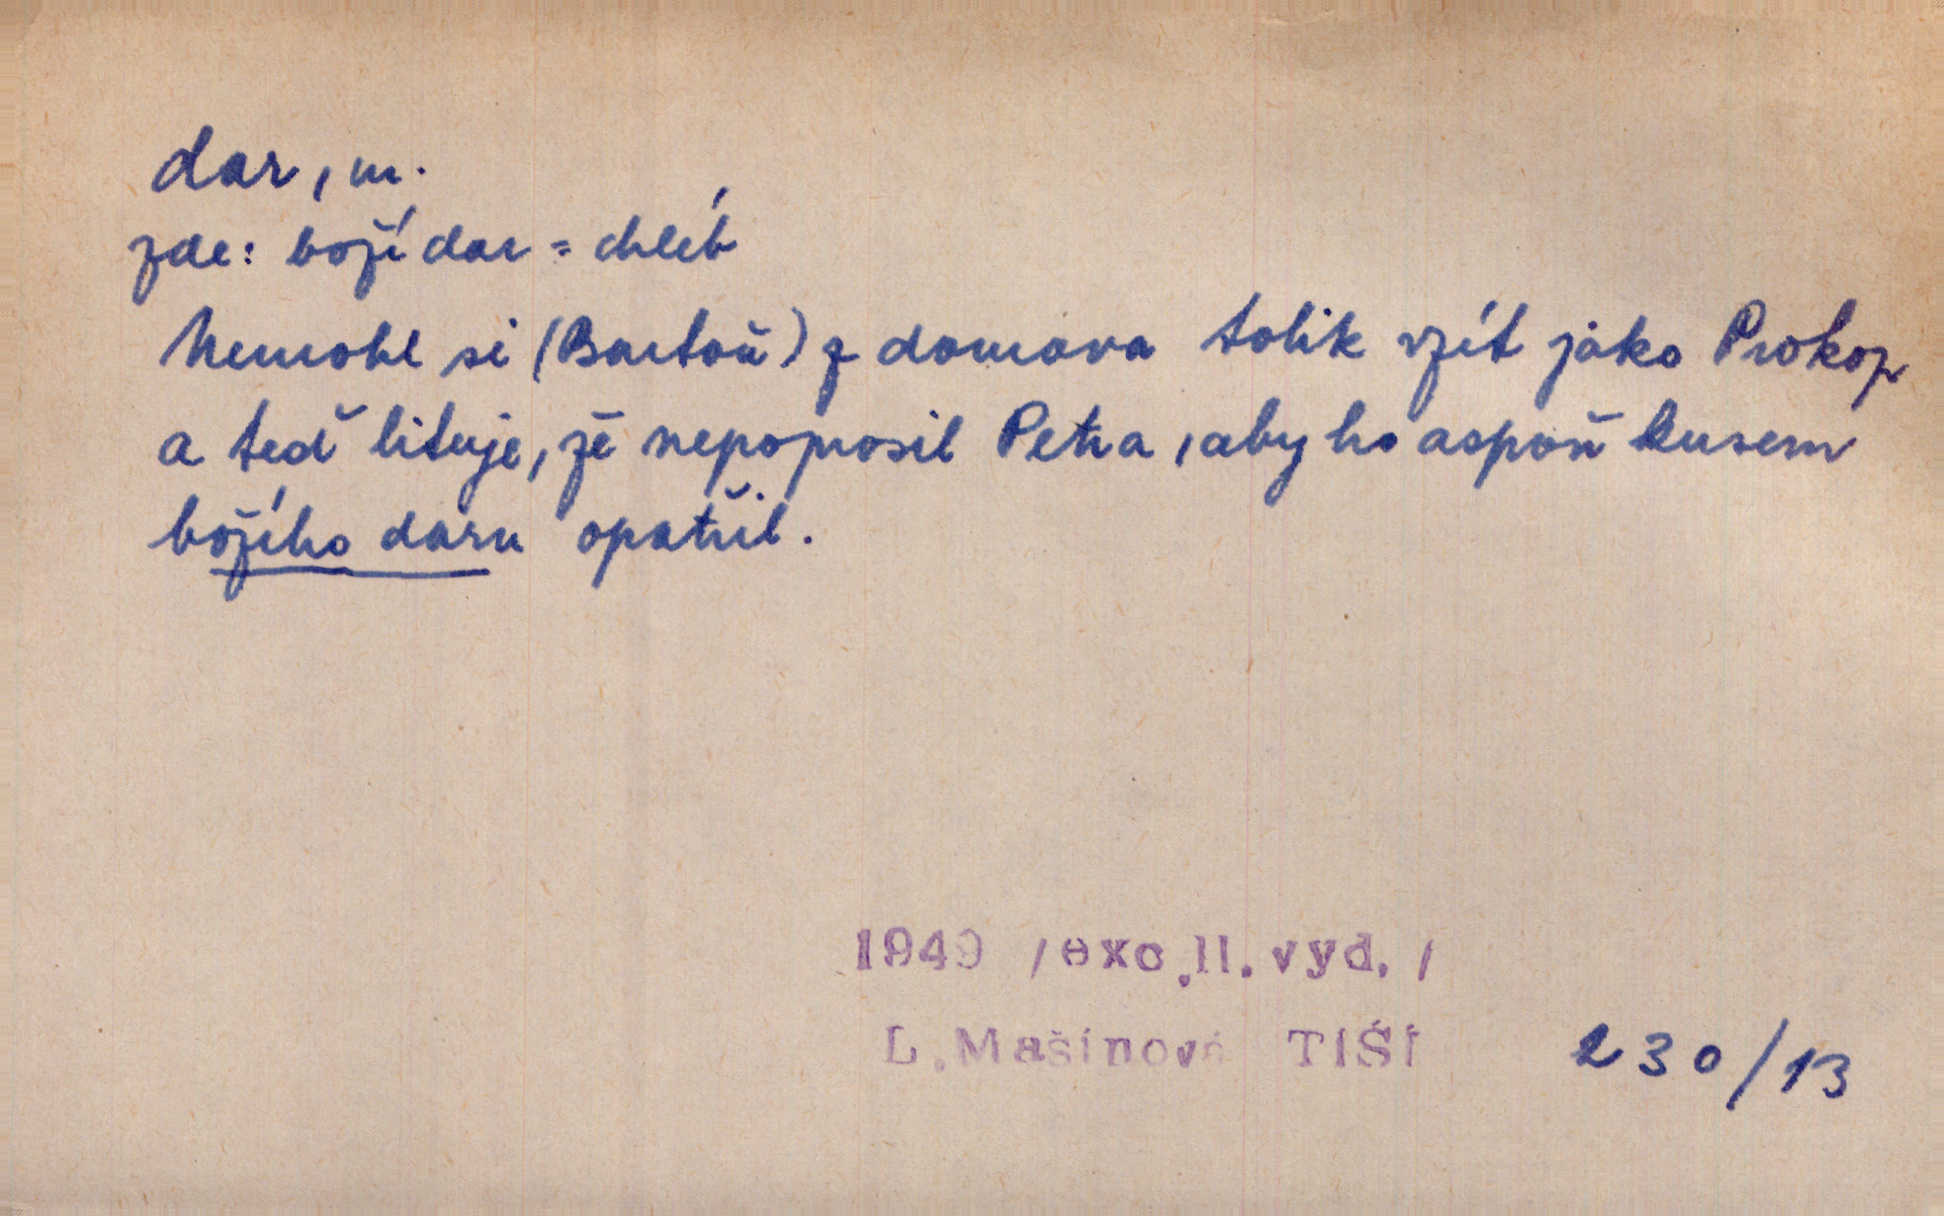 dar, m.
zde: boží dar = chléb
Nemohl si (Bartoň) z domova tolik vzít jako Prokop
a teď lituje, že nepoprosil Petra, aby ho aspoň kusem
božího daru opatřil.
1949 /exc.II.vyd./
L.Mašínová TIŠÍ
230/13